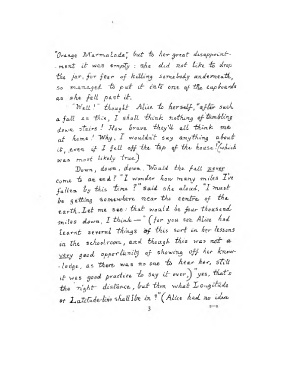 "Orange Marmalade," but to her great disappoint-
-ment it was empty: she did not like to drop
the jar, for fear of killing somebody underneath,
so managed to put it into one of the cupboards
as she fell past it.
"Well!" thought Alice to herself, "after such
a fall as this, I shall think nothing of tumbling
down stairs! How brave they'll all think me
at home! Why, I wouldn't say anything about
it, even if I fell off the top of the house!" (which
was most likely true.)
Down, down, down. Would the fall never
come to an end? "I wonder how many miles I've
fallen by this time?" said she aloud, "I must
be getting somewhere near the centre of the
earth. Let me see: that would be four thousand
miles down, I think—" (for you see Alice had
learnt several things of this sort in her lessons
in the schoolroom, and though this was not a
very good opportunity of showing off her know-
-ledge, as there was no one to hear her, still
it was good practice to say it over,) "yes, that's
the right distance, but then what Longitude
or Latitude-line shall I be in?" (Alice had no idea
3